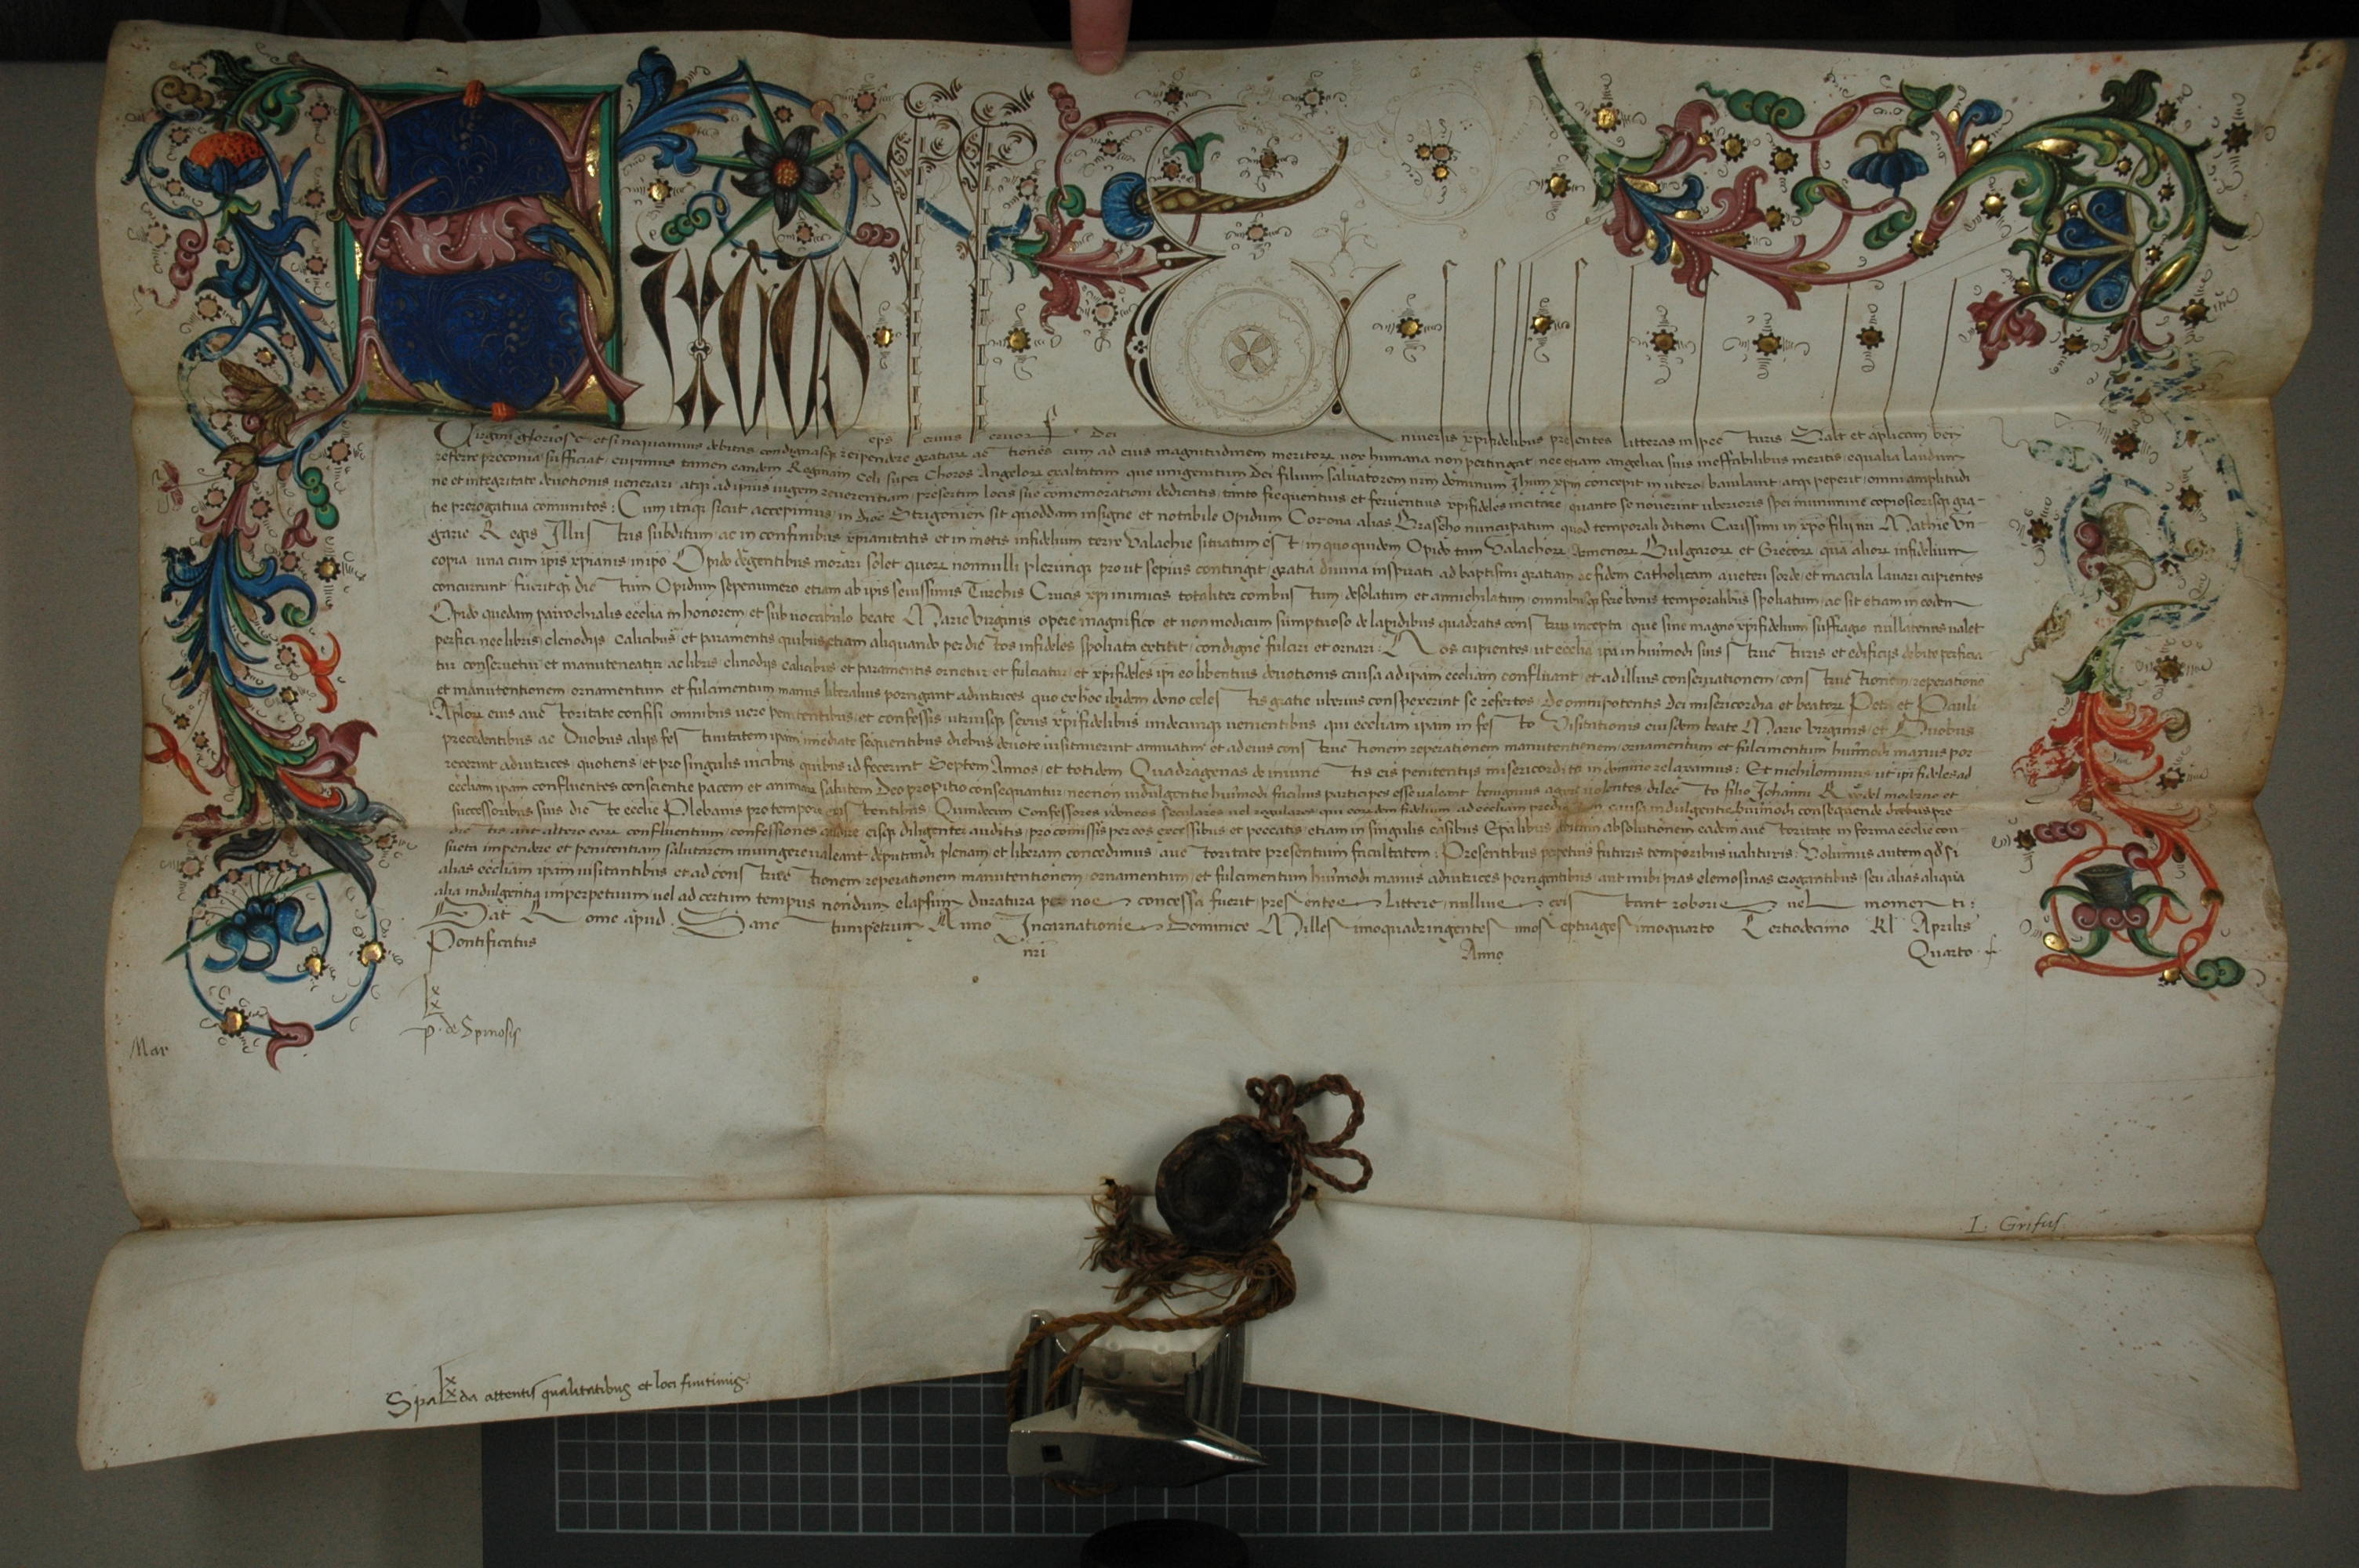 SIXTUS eps seruus seruor Dei Uniuersis xpifidelibus presentes litteras inspecturis Salt et aplicam ben
Virgini gloriose etsi nequeamus debitas condignasq rependere gratiare actiones cum ad eius magnitudinem meritore vox humana non pertingat nec etiam angelica suis ineffabilibus meritis equalia laudum
referre preconia sufficiat cupimus tamen eandem Reginam Celi super Choros Angelore exaltatam que unigenitum Dei filium saluatorem nrm dominum Ihum xpm concepit in utero baiulauit atq peperit omni amplitudi
ne et integritate deuotionis uenerari atq ad ipsius iugem reuerentiam presertim locis sue comemorationi dedicatis tanto frequentius et feruentius xpifideles incitare quanto se nouerint uberioris spei munimine copiosiorisq gra-
tie prerogatiua comunitos : Cum itaq sicut accepimus in dioc Strigonien sit quoddam insigne et notabile Opidum Corona alias Brascho nuncupatum quod temporali ditioni Carissimi in xpo filij nri Mathie Un-
garie Regis Illustris subditum ac in confinibus xpianitatis et in metis infidelium terre Valachie situatum est in quo quidem Opido tam Valachore Armenore Bulgarore et Grecore quā aliore infidelium
copia una cum ipis xpianis in ipo Opido degentibus morari solet quore nonnulli plerunq prout sepius contingit gratia diuina inspirati ad baptismi gratiam ac fidem catholicam a ueteri sorde et macula lauari cupientes
concurrunt fueritq dictum Opidum sepenumero etiam ab ipis seuissimis Turchis Crucis xpi inimicis totaliter combustum desolatum et annichilatum omnibusq fere bonis temporalibus spoliatum ac sit etiam in eodem
Opido quedam parrochialis ecclia in honorem et sub uocabulo beate Marie Virginis opere magnifico et non modicum sumptuoso de lapidibus quadratis construi incepta que sine magno xpifidelium suffragio nullatenus ualet
perfici nec libris clenodijs calicibus et paramentis quibus etiam aliquando per dictos infideles spoliata extitit condigne fulciri et ornari : Nos cupientes ut ecclia ipa in huiusmodi suis structuris et edificijs debite perficia
tur conseruetur et manuteneatur ac libris clinodijs calicibus et paramentis ornetur et fulciatur et xpifideles ipi eo libentius deuotionis causa ad ipam eccliam confluant et ad illius conseruationem constructionem reperationē
et manutentionem ornamentum et fulcimentum manus liberalius porrigant adiutrices quo ex hoc ibidem dono celestis gratie uberius conspexerint se refertos De omnipotentis Dei misericordia et beatore Petri et Pauli
Aplore eius auctoritate confisi omnibus uere penitentibus et confessis utriusq sexus xpifidelibus undecunq uenientibus qui eccliam ipam in festo Visitationis eiusdem beate Marie Virginis et Duobus
precedentibus ac Duobus alijs festiuitatem ipam imediate sequentibus diebus deuote uisitauerint annuatim et ad eius constructionem reperationem manutentionem ornamentum et fulcimentum huiusmodi manus por
rexerint adiutrices quotiens et pro singulis uicibus quibus id fecerint Septem Annos et totidem Quadragenas de iniunctis eis penitentijs misericorditer in domino relaxamus : Et nichilominus ut ipi fideles ad
eccliam ipam confluentes conscientie pacem et animare salutem Deo propitio consequantur necnon indulgentie huiusmodi facilius participes esse ualeant benignius agere uolentes dilecto filio Johanni Rexdel moderno et
successoribus suis dicte ecclie Plebanis pro tempore existentibus Quindecim Confessores idoneos seculares uel regulares qui eorundem fidelium ad eccliam predictam causa indulgentie huiusmodi consequende diebus pre
dictis aut altero eore confluentium confessiones audire eisq diligenter auditis pro comissis per eos excessibus et peccatis etiam in singulis casibus Epalibus debitam absolutionem eadem auctoritate in forma ecclie con-
sueta impendere et penitentiam salutarem iniungere ualeant deputandi plenam et liberam concedimus auctoritate presentium facultatem : Presentibus perpetuis futuris temporibus ualituris : Volumus autem qd si
alias eccliam ipam uisitantibus et ad constructionem reperationem manutentionem ornamentum et fulcimentum huiusmodi manus adiutrices porrigentibus aut inibi pias elemosinas erogantibus seu alias aliqua
alia indulgentia imperpetuum uel ad certum tempus nondum elapsum duratura per nos concessa fuerit presentes littere nullius existant roboris uel momenti :
Dat Rome apud Sanctumpetrum Anno Incarnationis Dominice Millesimoquadringentesimoseptuagesimoquarto Tertiodecimo Kl Aprilis
Pontificatus nri Anno Quarto
Lxx
P. de Spinosis
Mar
L. Grifus
Spa Lxx da attentis qualitatibus et loci finitimis